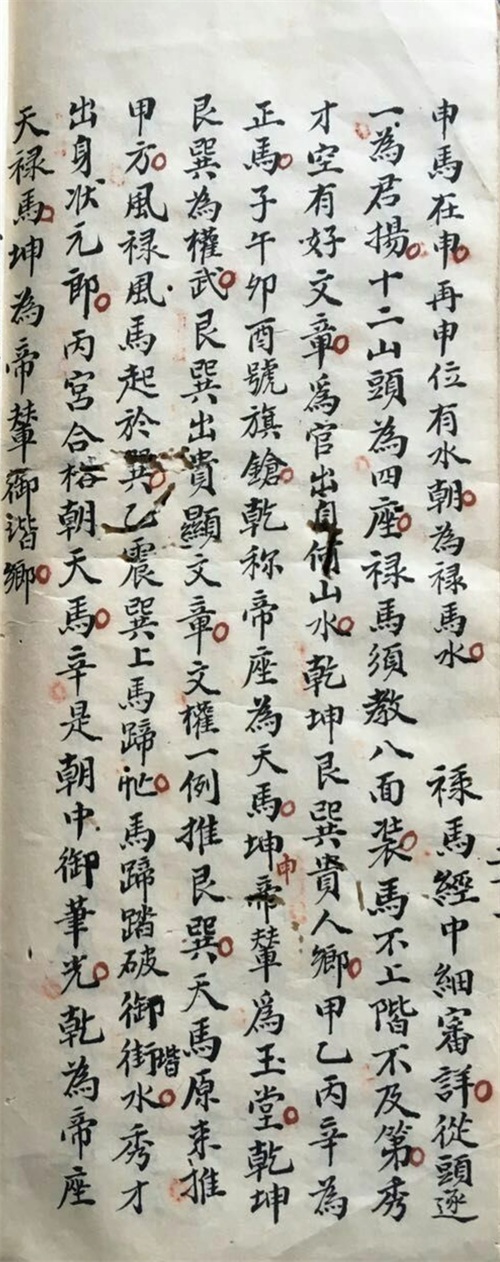 申馬在申。再申位有水朝。為禄馬水。 禄馬經中細審詳。從頭逐
一為君揚。十二山頭為四座。禄馬須教八面装。馬不上階不及第。秀
才空有好文章。爲官出自備山水。乾坤艮巽貴人鄉。甲乙丙辛為
正馬。子午卯酉號旗鎗。乾称帝座為天馬。坤申帝輦爲玉堂。乾坤
艮巽為權武。艮巽出貴顯文章。文權一例推艮巽。天馬原来推
甲方。風禄風馬起於巽。乙震巽上馬蹄忙。馬蹄踏破御街階水。秀才
出身状元郎。丙宮合格朝天馬。辛是朝中御筆光。乾為帝座
天禄馬。坤為帝輦御谐鄉。